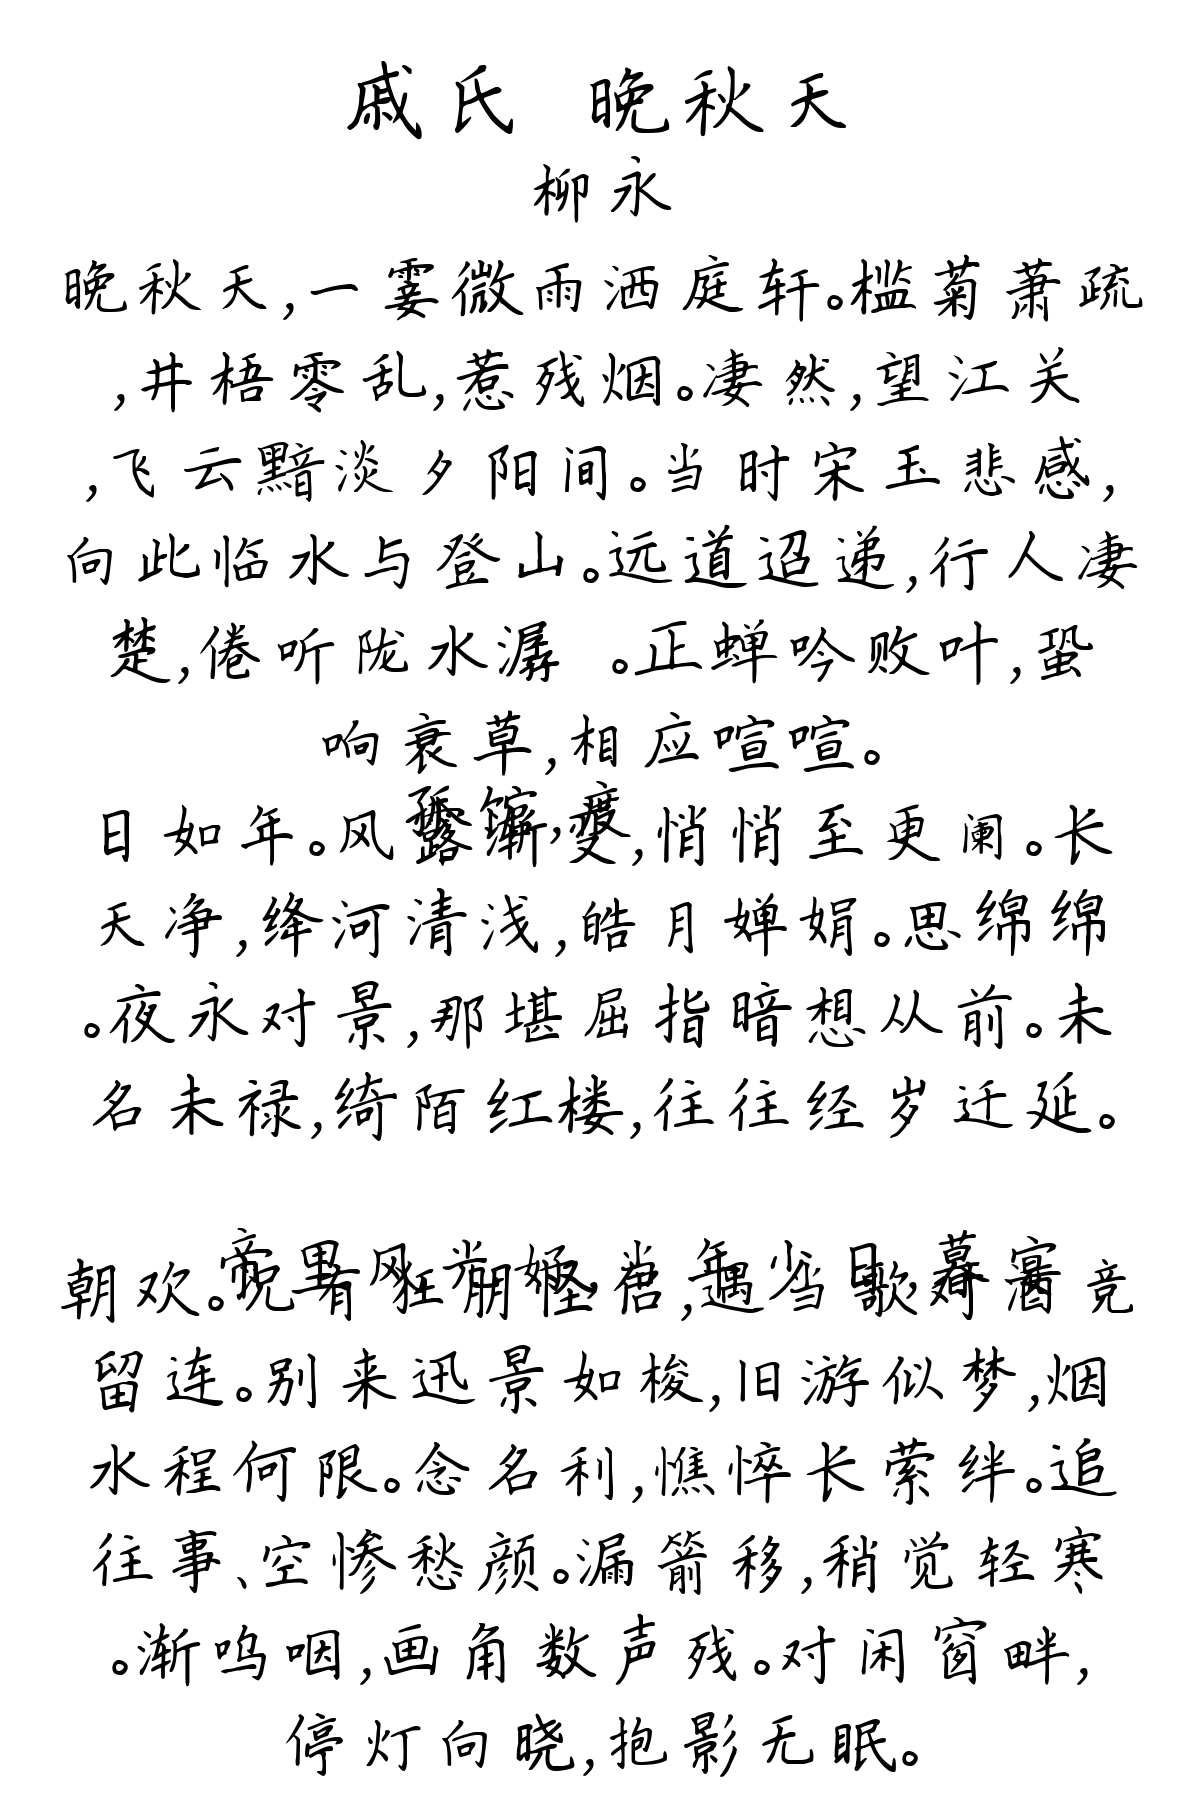 戚氏 晚秋天
柳永
晚秋天,一霎微雨洒庭轩。槛菊萧疏
,井梧零乱,惹残烟。凄然,望江关
,飞云黯淡夕阳间。当时宋玉悲感,
向此临水与登山。远道迢递,行人凄
楚,倦听陇水潺 。正蝉吟败叶,蛩
响衰草,相应喧喧。
孤馆,度
日如年。风露渐变,悄悄至更阑。长
天净,绛河清浅,皓月婵娟。思绵绵
。夜永对景,那堪屈指暗想从前。未
名未禄,绮陌红楼,往往经岁迁延。
帝里风光好,当年少日,暮宴
朝欢。况有狂朋怪侣,遇当歌对酒竞
留连。别来迅景如梭,旧游似梦,烟
水程何限。念名利,憔悴长萦绊。追
往事、空惨愁颜。漏箭移,稍觉轻寒
。渐呜咽,画角数声残。对闲窗畔,
停灯向晓,抱影无眠。